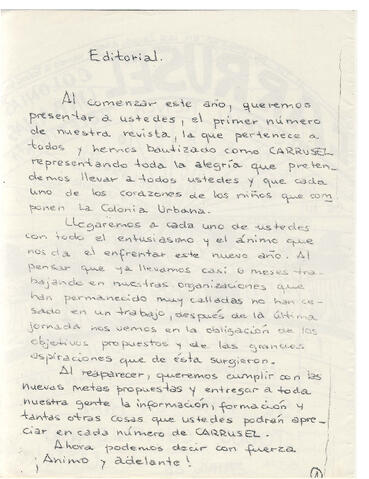 Editorial.
Al comenzar este año, queremos
presentar a ustedes, el primer número
de nuestra revista, la que pertenece a
todos y hemos bautizado como CARRUSEL
representando toda la alegría que preten-
demos llevar a todos ustedes y que cada
uno de los corazones de los niños que com
ponen La Colonia Urbana.
Llegaremos a cada uno de ustedes
con todo el entusiasmo y el ánimo que
nos da el enfrentar este nuevo año. Al
pensar que ya llevamos casi 6 meses tra-
bajando en nuestras organizaciones que
han permanecido muy calladas no han ce-
sado en un trabajo, después de la última
jornada nos vemos en la obligación de los
objetivos propuestos y de las grandes
aspiraciones que de ésta surgieron.
Al reaparecer, queremos cumplir con las
nuevas metas propuestas y entregar a toda
nuestra gente la información, formación y
tantas otras cosas que ustedes podrán apre-
ciar en cada número de CARRUSEL.
Ahora podemos decir con fuerza
¡Animo y adelante!
1